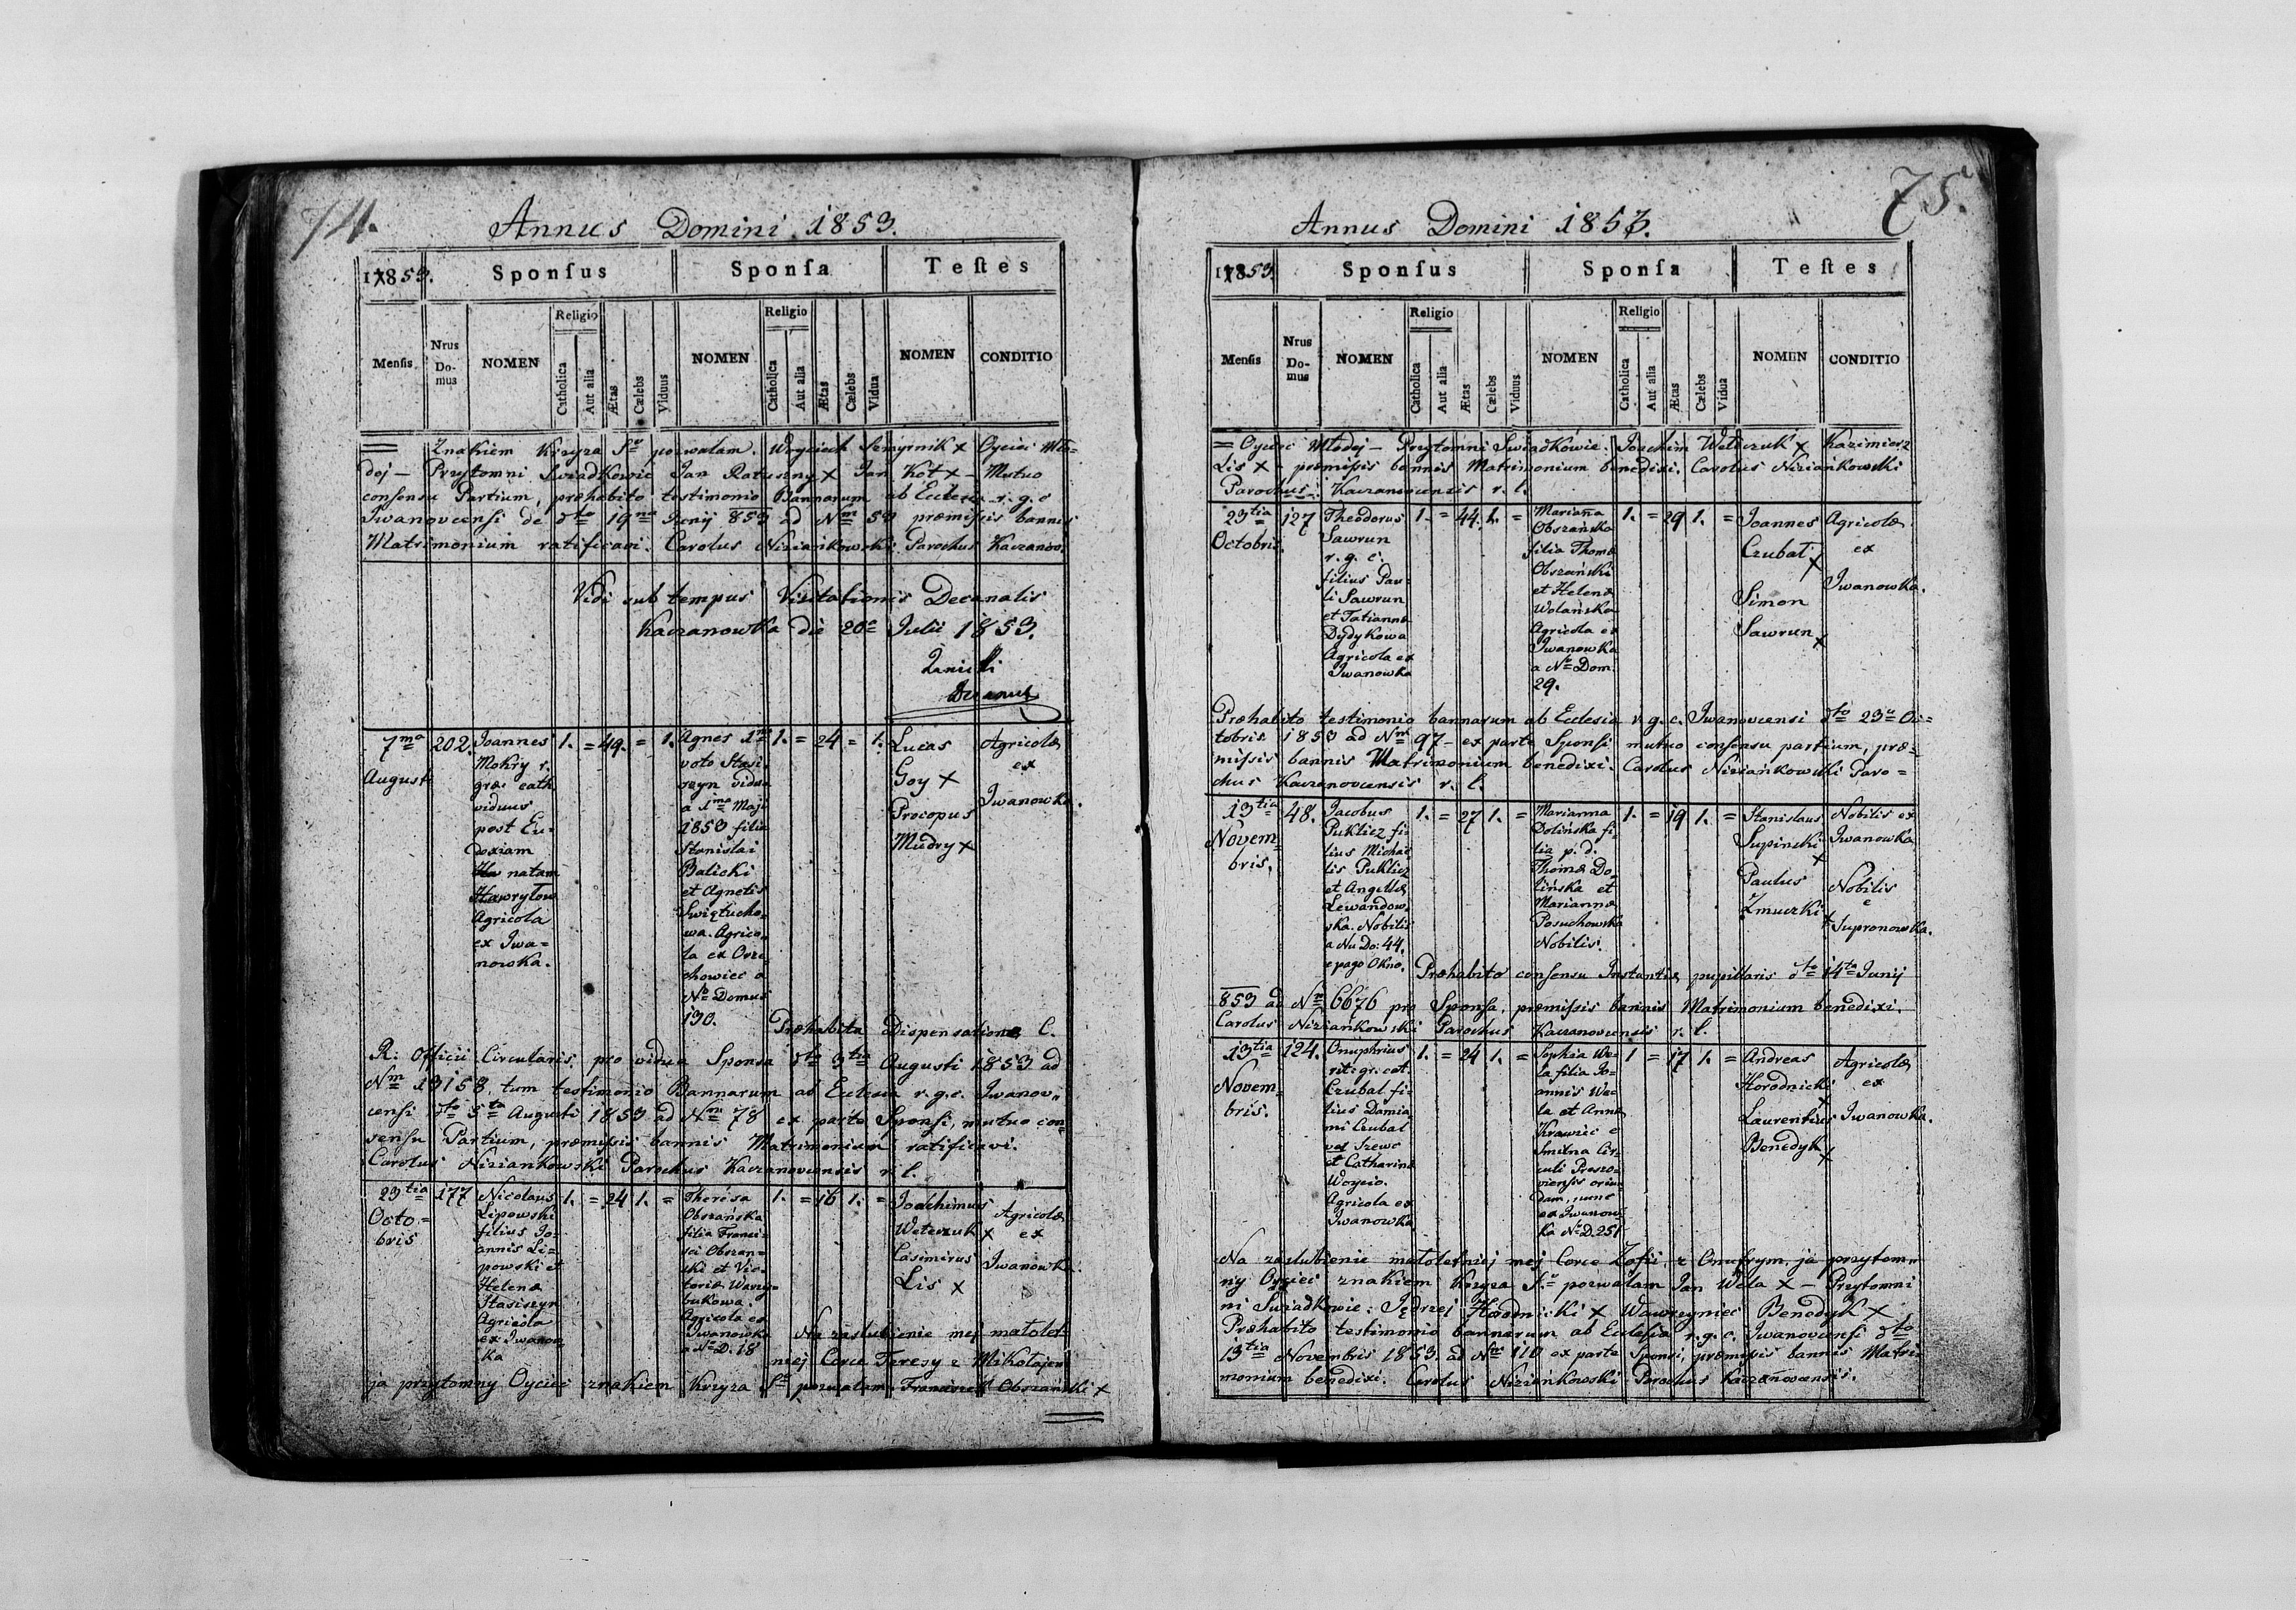 74.
Annus Domini 1853.
1853.
Sponsus
Sponsa
Testes
Mensis
Nrus Do-mus
NOMEN
Religio
Catholica
Aut alia
Ætas
Cælebs
Viduus
NOMEN
Religio
Catholica
Aut alia
Ætas
Cælebs
Vidua
NOMEN
CONDITIO
Znakiem Krzyża Sº pozwalam. Woyciech Semyrnik x Oyciec Mło-
dej — Przytomni Swiadkowie Jan Ratuszny x Jan Kot x — Mutuo
consensu Partium, præhabito testimonio Bannorum ab Ecclesia r. g. c
Iwanovcensi de dto 19na Junij 853 ad Nm 59 præmissis bannis
Matrimonium ratificavi. Carolus Niziańkowski Parochus Kaczanov.
Vidi sub tempus Visitationis Decanalis
Kaczanowka die 20a Julii 1853.
Decanus
7ma
August
202.
Joannes
Mokry r.
græ. cath
viduus
post Eu-
doxiam
natam
Hawryłow
Agricola
ex Iwa=
nowka.
1. = 49. = 1.
Agnes 1mo
voto Stasi-
szyn vidua
a 1ma Maji
1853 filia
Stanislai
Balicki
et Agnetis
Swiętucho-
wa. Agrico-
la ex Orze-
chowiec a
No Domus
190.
1. = 24 = 1.
Lucas
Goy x
Procopus
Mudry x
Agricolæ
ex
Iwanowka.
Præhabita dispensatione C.
R. Officii Circularis pro vidua Sponsa dto 3tia Augusti 1853 ad
Nm 13158, tum testimonio Bannorum ab Ecclesia r. g. c. Iwanov-
censi dto 5ta Augusti 1853 ad Nm 78 ex parte Sponsi, mutuo con-
sensu Partium, præmissis bannis Matrimonium ratificavi.
Carolus Niziankowski Parochus Kaczanovcensis r. l.
23tia
Octo=
bris
177
Nicolaus
Lipowski
filius Jo-
annis Li=
powski et
Helenæ
Stasiszyn
Agricola
ex Iwanow
ka
1. = 24 1. =
Theresa
Obszańska
filia Franci-
sci Obszan-
ski et Vic-
toriæ Warzy-
bukowa.
Agricola ex
Iwanowka
a No D. 18
1. = 16 1. =
Joachimus
Weteczuk x
Casimirus
Lis x
Agricolæ
ex
Iwanowka.
Na zaslubienie mej małolet-
niej Corce Teresy z Mikołajem
ja przytomny Oyciec znakiem Krzyza Sº pozwalam. Franciszek Obszański x
75.
Annus Domini 1853.
1853.
Sponsus
Sponsa
Testes
Mensis
Nrus Do-mus
NOMEN
Religio
Catholica
Aut alia
Ætas
Cælebs
Viduus
NOMEN
Religio
Catholica
Aut alia
Ætas
Cælebs
Vidua
NOMEN
CONDITIO
= Oyciec Młodej — Przytomni Swiadkowie: Joachim Weteczuk x Kazimierz
Lis x — præmissis bannis Matrimonium benedixi. Carolus Niziańkowski
Parochus Kaczanovcensis r. l.
23tia
Octobris.
127
Theodorus
Sawrun
r. g. c.
filius Pau-
li Sawrun
et Tatianna
Dydykowa
Agricola ex
Iwanowka
1. = 44. 1. =
Marianna
Obszańska
filia Thomæ
Obszański
et Helenæ
Wolańska
Agricola ex
Iwanowka
a No Dom.
29.
1. = 29 1. =
Joannes
Czubat x
Simon
Sawrun x
Agricolæ
ex
Iwanowka.
Præhabito testimonio bannorum ab Ecclesia r. g. c. Iwanovcensi dto 23a Oc-
tobris 1853 ad Nm 97 — ex parte Sponsi mutuo consensu partium, præ-
missis bannis Matrimonium benedixi. Carolus Niziańkowski Paro=
chus Kaczanovcensis r. l.
13tia
Novem-
bris.
48.
Jacobus
Puklicz fi-
lius Michae-
lis Puklicz
et Angellæ
Lewandow-
ska. Nobilis
a Nu Do: 44.
e pago Okno.
1. = 27 1. =
Marianna
Dolińska fi-
lia p. d.
Thomæ Do-
lińska et
Marianna
Posuchowska
Nobilis.
1. = 19 1. =
Stanislaus
Supinski x
Paulus
Zmuczki x
Nobilis ex
Iwanowka
Nobilis
e
Supronowka.
Præhabito consensu Instantiæ pupillaris dto 14ta Junij
853 ad Nm 6676 pro Sponsa, præmissis bannis Matrimonium benedixi.
Carolus Niziańkowski Parochus Kaczanovcensis r. l.
13tia
Novem-
bris.
124.
Onuphrius
rit: gr: cat.
Czubal fi-
lius Damia-
ni Czubal
vel Szewc
et Catharinæ
Woycio.
Agricola ex
Iwanowka
1. = 24 1. =
Sophia We-
la filia Jo-
annis We-
la et Anna
Krawiec e
Smolna Cir-
culi Przszo-
viensis oriun
dam, nunc
ex Iwanow-
ka No D. 251
1 = 17 1. =
Andreas
Horodnicki x
Laurentius
Benedyk x
Agricolæ
ex
Iwanowka.
Na zaslubienie małoletniej mej Corce Zofii z Onufrym, ja przytom-
ny Oyciec znakiem Krzyza Sº pozwalam Jan Wela x — Przytom
ni Swiadkowie: Jędrzej Horodnicki x, Wawrzyniec Benedyk x
Præhabito testimonio bannorum ab Ecclesia r. g. c. Iwanovcensi dto
13tia Novembris 1853. ad Nm 110 ex parte Sponsi, præmissis bannis Matri-
monium benedixi. Carolus Niziańkowski Parochus Kaczanovcensis.